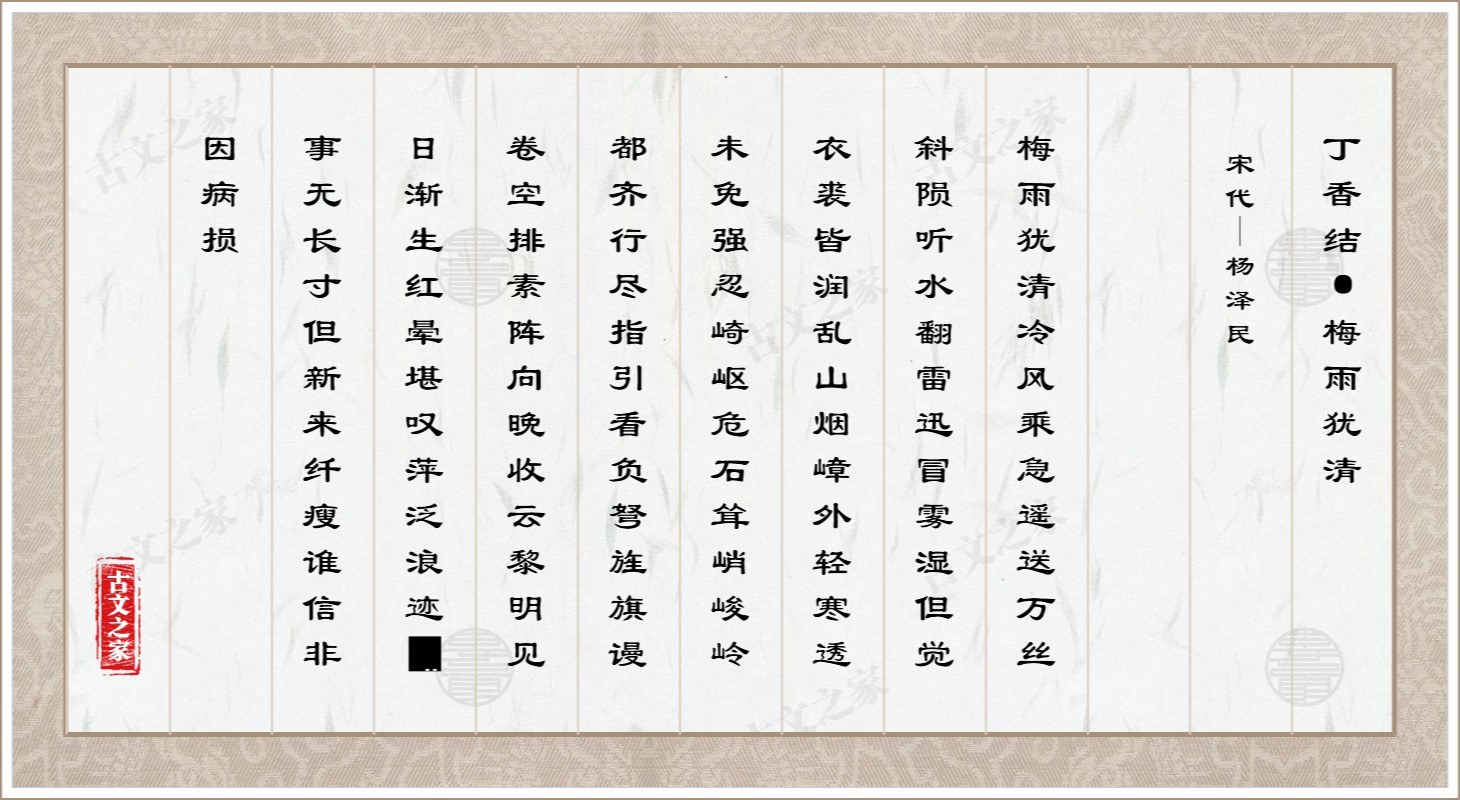 丁香结●梅雨犹清
宋代—杨泽民
梅雨犹清冷风乘急遥送万丝
斜陨听水翻雷迅冒雾湿但觉
衣裘皆润乱山烟嶂外轻寒透
未免强忍崎岖危石耸峭峻岭
都齐行尽指引看负弩旌旗谩
卷空排素阵向晚收云黎明见
日渐生红晕堪叹萍泛浪迹
事无长寸但新来纤瘦谁信非
因病损
古文之家